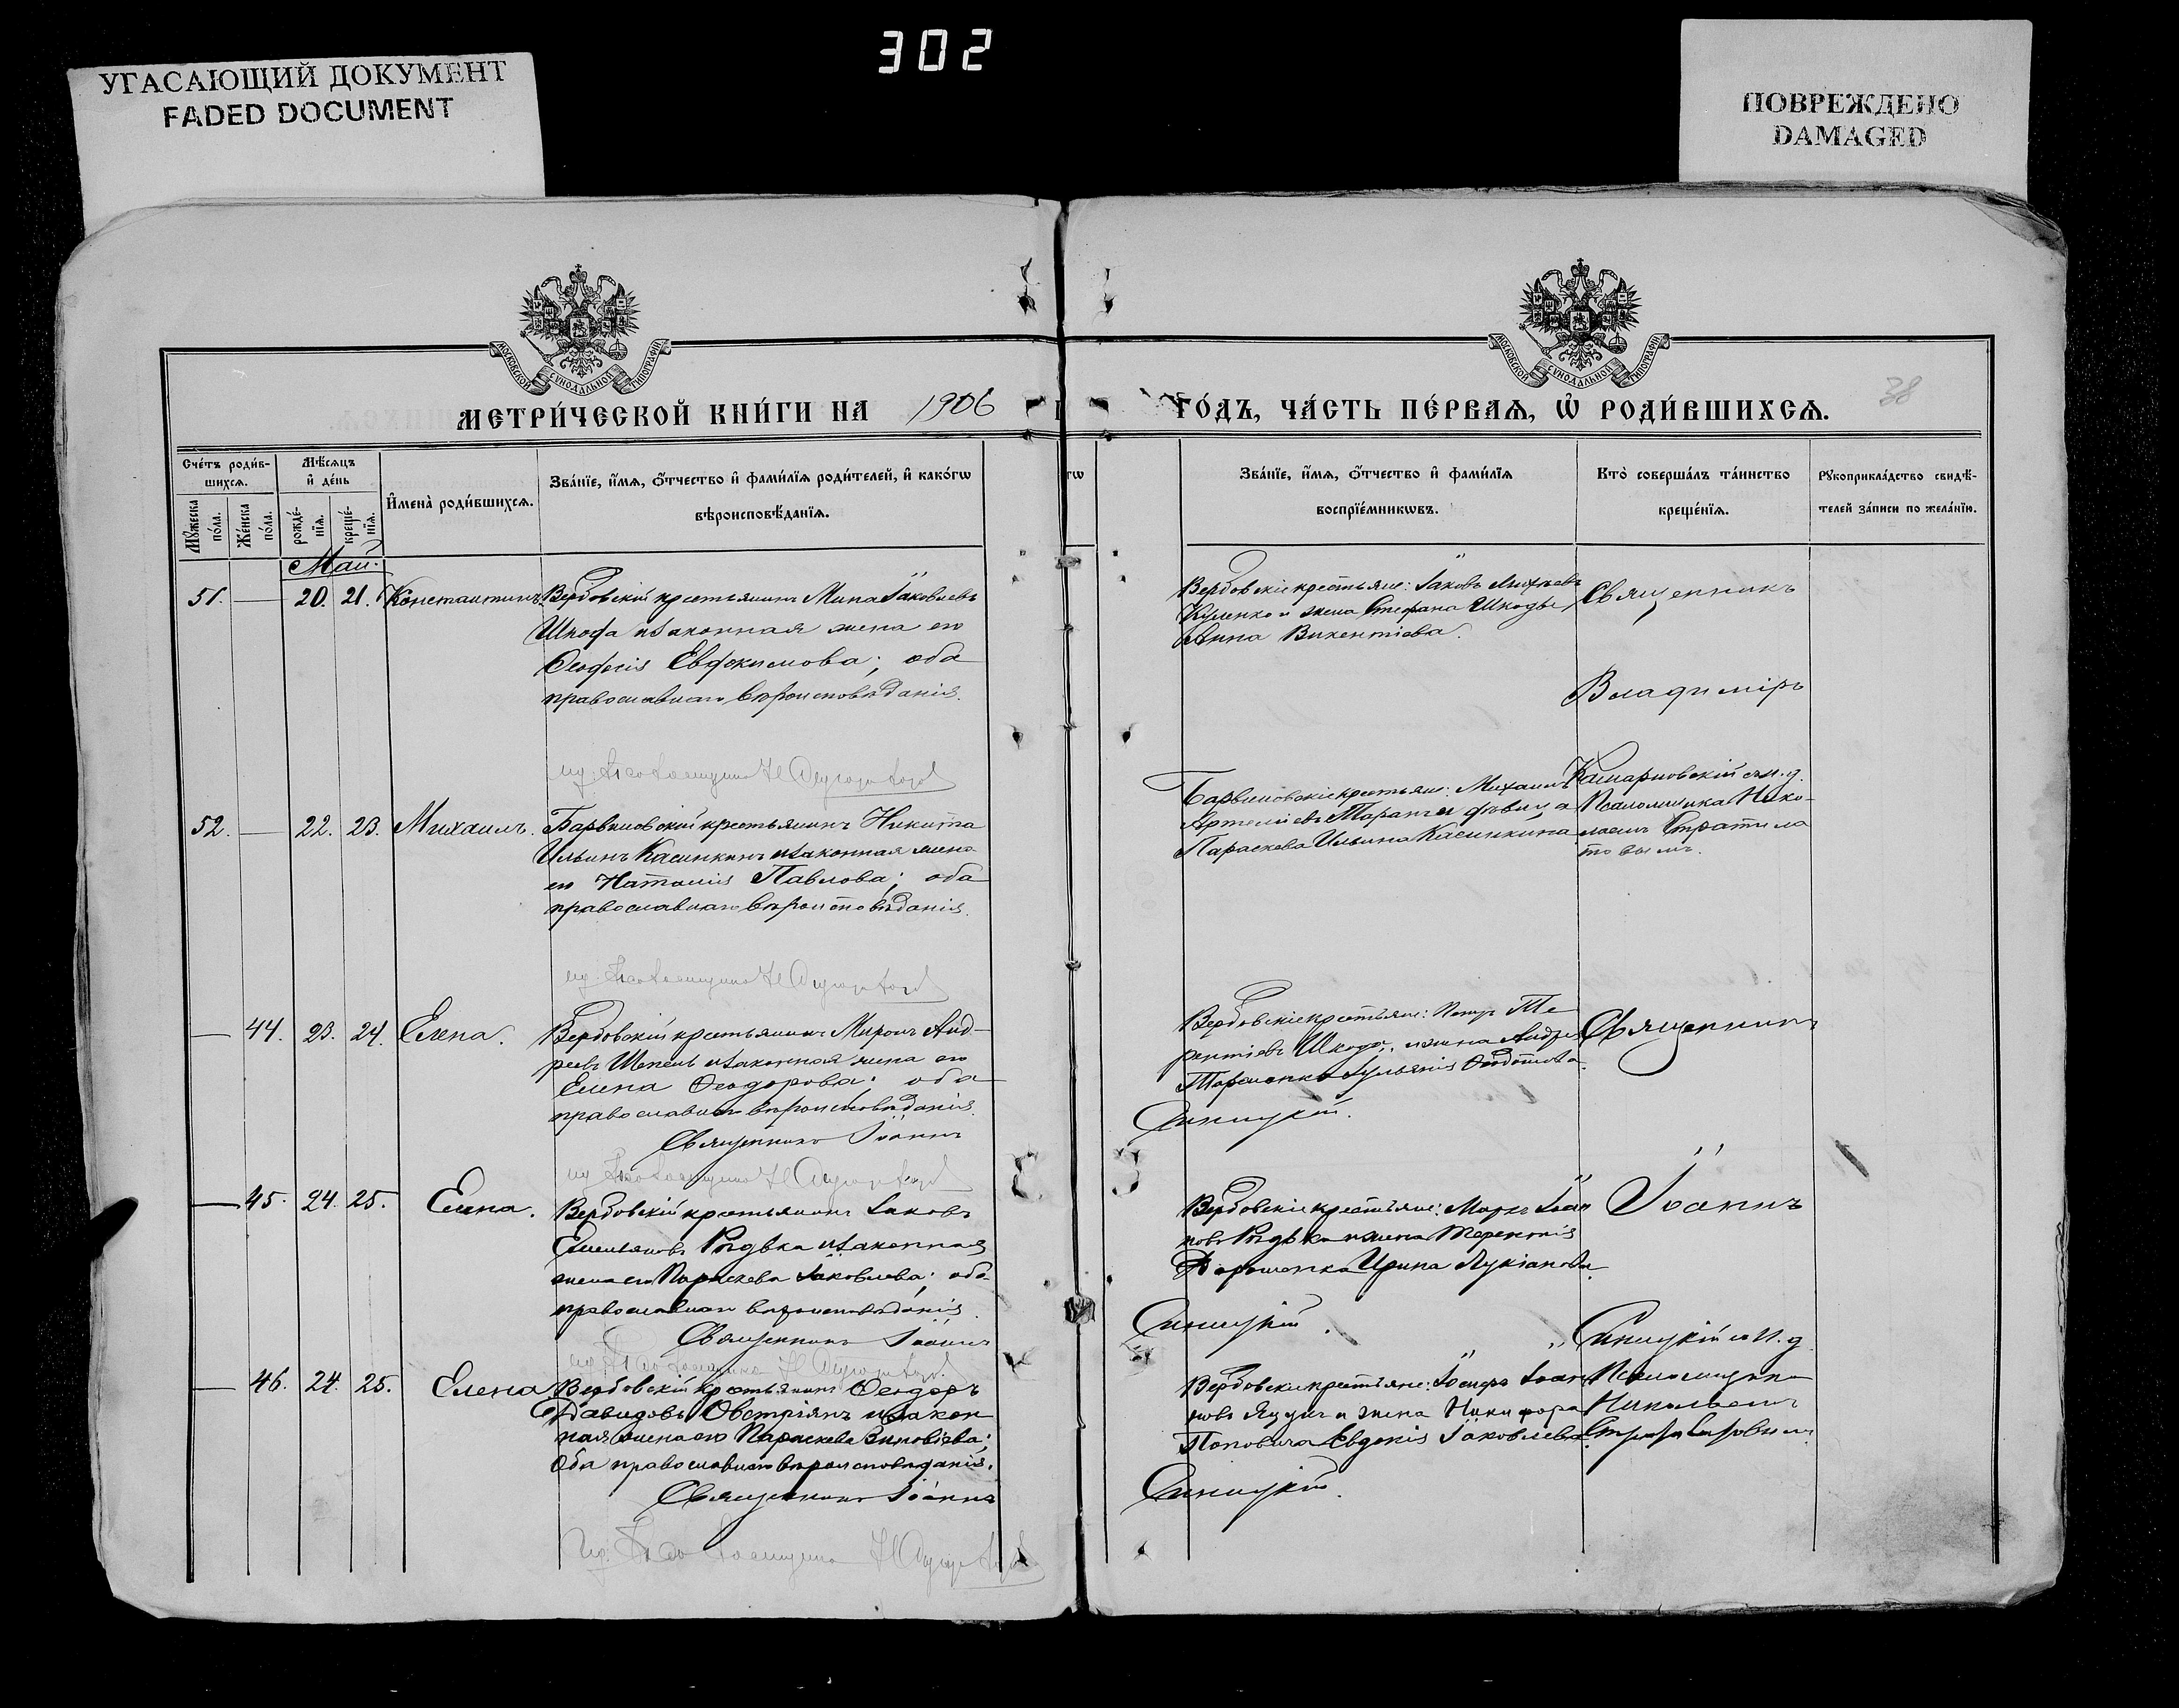 302
УГАСАЮЩИЙ ДОКУМЕНТ
FADED DOCUMENT
ПОВРЕЖДЕНО
DAMAGED
МОСКОВСКОЙ СѴНОДАЛЬНОЙ ТИПОГРАФІИ
МОСКОВСКОЙ СѴНОДАЛЬНОЙ ТИПОГРАФІИ
МЕТРИ́ЧЕСКОЙ КНИ́ГИ НА 1906
ГО́ДЪ, ЧА́СТЬ ПЕ́РВАѦ, Ѡ҆ РОДИ́ВШИХСѦ.
38
Сче́тъ роди́в-
шихсѧ.
Мѣ́сѧцъ
и҆ де́нь
И҆мена̀ роди́вшихсѧ.
Зва́нїе, и҆́мѧ, ѻ҆́тчество и҆ фами́лїѧ роди́телей, и҆ како́гѡ
вѣроисповѣ́данїѧ.
Мꙋ́жеска
по́ла.
Же́нска
по́ла.
рожде́-
нїѧ.
креще́-
нїѧ.
гѡ
Зва́нїе, и҆́мѧ, ѻ҆́тчество и҆ фами́лїѧ
воспрїе́мникѡвъ.
Кто̀ соверша́лъ та́инство
креще́нїѧ.
Рꙋкоприкла́дство свидѣ́-
телей за́писи по жела́нїю.
Май.
51. — 20. 21. Константинъ. Вербовскій крестьянинъ Мина Іаковлевъ
Шкода и законная жена его
Феодосія Евфокимова; оба
православнаго вѣроисповѣданія.
Вербовскіе крестьяне: Іаковъ
Куценко и жена Стефана Шкоды,
Анна Викентіева.
Священникъ
Владимiръ
52. — 22. 23. Михаилъ. Барвиновскій крестьянинъ Никита
Ильинъ Касинкинъ и законная жена
его Наталія Павлова; оба
православнаго вѣроисповѣданія.
Барвиновскіе крестьяне: Михаилъ
Артеміевъ и дѣвица
Параскева Ильина Касинкина
съ и. д.
Псаломщика Нико-
лаемъ Стратила
товымъ.
— 44. 23. 24. Елена. Вербовскій крестьянинъ Миронъ Анд-
реевъ Шепель и законная жена его
Елена Феодорова; оба
православнаго вѣроисповѣданія.
Священникъ Іоаннъ
Вербовскіе крестьяне: Петръ Те-
рентіевъ Шкода, и жена Андрея
Синицкій.
Священникъ
— 45. 24. 25. Елена. Вербовскій крестьянинъ Іаковъ
Емельяновъ Рѣдька и законная
жена его Параскева Іаковлева; оба
православнаго вѣроисповѣданія.
Священникъ Іоаннъ
Вербовскіе крестьяне: Марко Іоан
новъ Рѣдька и жена Терентія
Дорошенка Ирина Лукіанова.
Синицкій.
Іоаннъ
Синицкій съ и. д.
— 46. 24. 25. Елена. Вербовскій крестьянинъ Феодоръ
Давидовъ Овстріянъ и закон
ная жена его Параскева Зиновіева;
Оба православнаго вѣроисповѣданія.
Священникъ Іоаннъ
Вербовскіе крестьяне: Іосифъ Іоан
новъ Яцунъ и жена Никифора
Поповича Евдокія Іаковлева.
Синицкій.
Псаломщика
Николаемъ
Стратилатовымъ